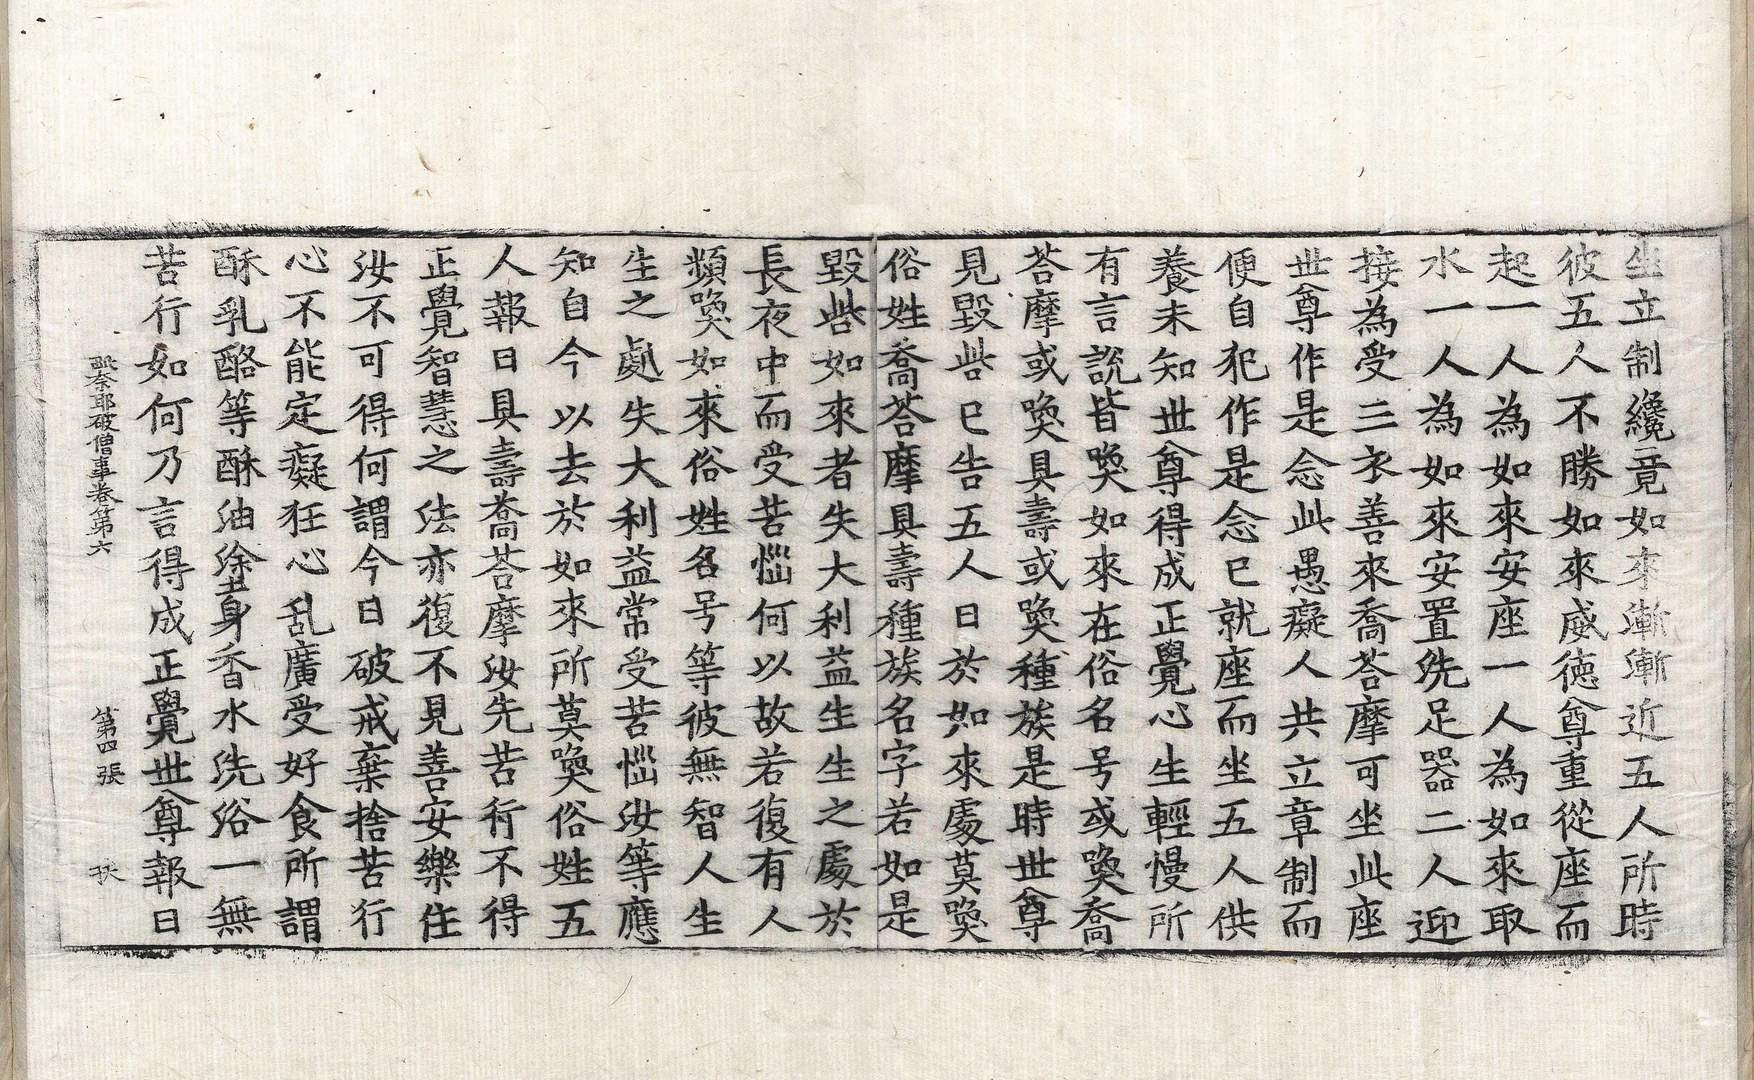 坐立制纔竟如來漸漸近五人所時
彼五人不勝如來威德尊重從座而
起一人為如來安座一人為如來取
水一人為如來安置洗足器二人迎
接為受三衣善來喬荅摩可坐此座
世尊作是念此愚癡人共立章制而
便自犯作是念已就座而坐五人供
養未知世尊得成正覺心生輕慢所
有言說皆喚如來在俗名号或喚喬
荅摩或喚具壽或喚種族是時世尊
見毀呰已告五人曰於如來處莫喚
俗姓喬荅摩具壽種族名字若如是
毀呰如來者失大利益生生之處於
長夜中而受苦惱何以故若復有人
頻喚如來俗姓名号等彼無智人生
生之處失大利益常受苦惱汝等應
知自今以去於如來所莫喚俗姓五
人報曰具壽喬荅摩汝先苦行不得
正覺智慧之法亦復不見善安樂住
汝不可得何謂今日破戒棄捨苦行
心不能定癡狂心乱廣受好食所謂
酥乳酪等酥油塗身香水洗浴一無
苦行如何乃言得成正覺世尊報曰
毗奈耶破僧事卷第六 第四張